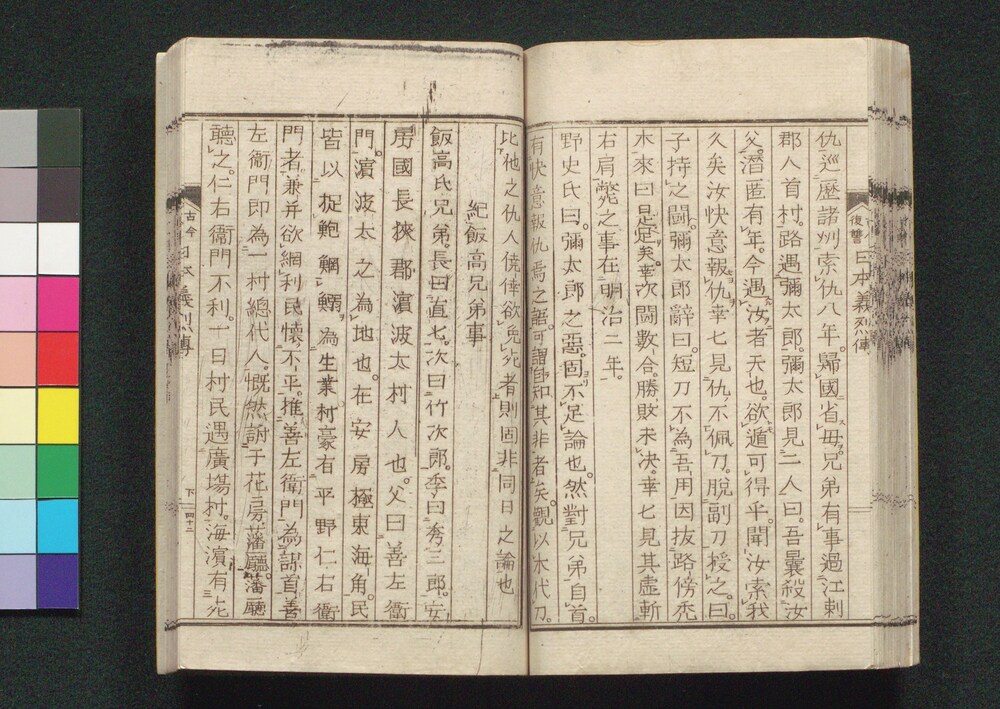 仇巡歷諸州索仇八年。歸國省母。兄弟有事過江剌
郡人首村。路遇彌太郎。彌太郎見二人曰。吾曩殺汝
父。潛匿有年。今遇汝者天也。欲遁可得乎。聞汝索我
久矣汝快意報仇。幸七見仇不佩刀。脫副刀授之。曰。
子持之鬪。彌太郎辭曰。短刀不為吾用因拔路傍禿
木來曰是足矣。幸次鬪數合。勝敗未決。幸七見其虛斬
右肩斃之事在明治二年。
野史氏曰。彌太郎之惡。固不足論也。然對兄弟自首。
有快意報仇焉之語。可謂自知其非者矣。觀以木代刀。
比他之仇人僥倖欲免死者則固非同日之論也
紀飯高兄弟事
飯高氏兄弟。長曰直七。次曰竹次郎。季曰秀三郎。安
房國長挾郡濵波太村人也。父曰善左衞
門。濵波太之為地也。在安房極東海角。民
皆以捉鮑鯛鰯為生業村豪有平野仁右衞
門者兼并欲網利民懷不平。推善左衞門為謀首。善
左衞門即為一村總代人。慨然訴于花房藩廳。藩廳
聽之。仁右衞門不利。一日村民遇廣塲村。海濵有死
復讐
日本義烈傳
古今
日本義烈傳
下
四十二